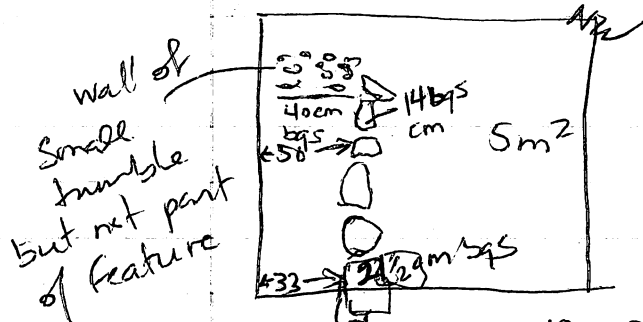 wall of
small
tumble
but not part
of feature
40cm
bgs
14bgs
cm
5m²
←50
←33
bgs